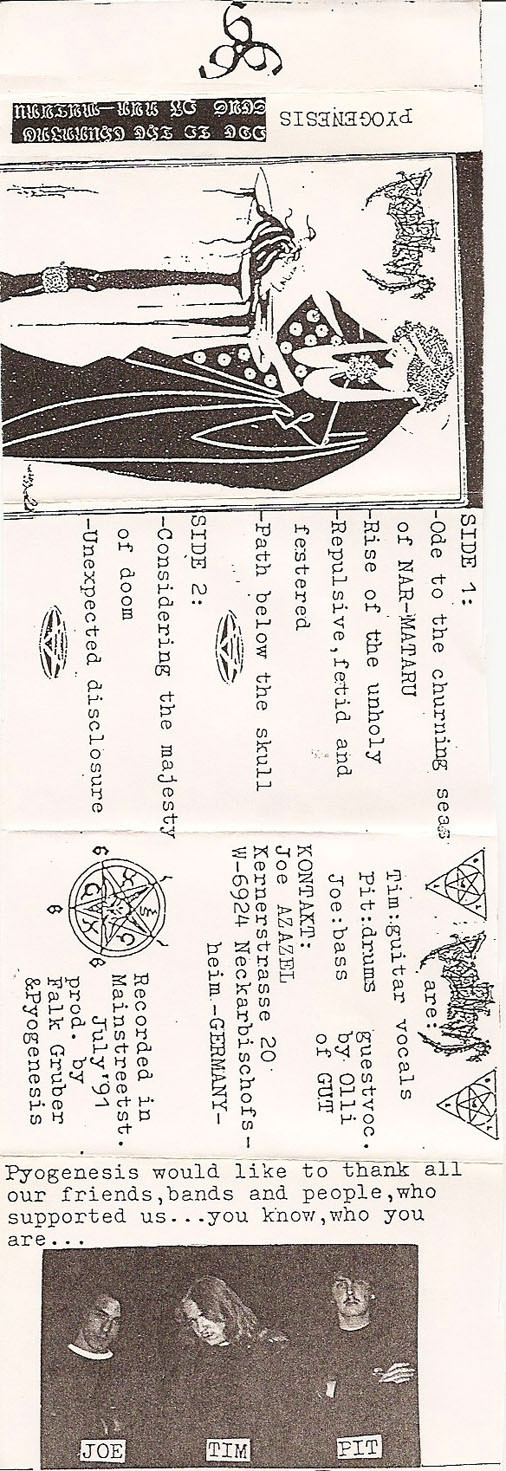 PYOGENESIS
ODE TO THE CHURNING
SEAS OF NAR-MATARU
SIDE 1:
-Ode to the churning seas
of NAR-MATARU
-Rise of the unholy
-Repulsive,fetid and
festered
-Path below the skull
SIDE 2:
-Considering the majesty
of doom
-Unexpected disclosure
PYOGENESIS
are:
Tim:guitar vocals
Pit:drums guestvoc.
Joe:bass by Olli
of GUT
KONTAKT:
Joe AZAZEL
Kernerstrasse 20
W-6924 Neckarbischofs-
heim-GERMANY-
Recorded in
Mainstreetst.
July'91
prod. by
Falk Gruber
&Pyogenesis
6
6
6
Pyogenesis would like to thank all
our friends,bands and people,who
supported us...you know,who you
are...
JOE TIM PIT